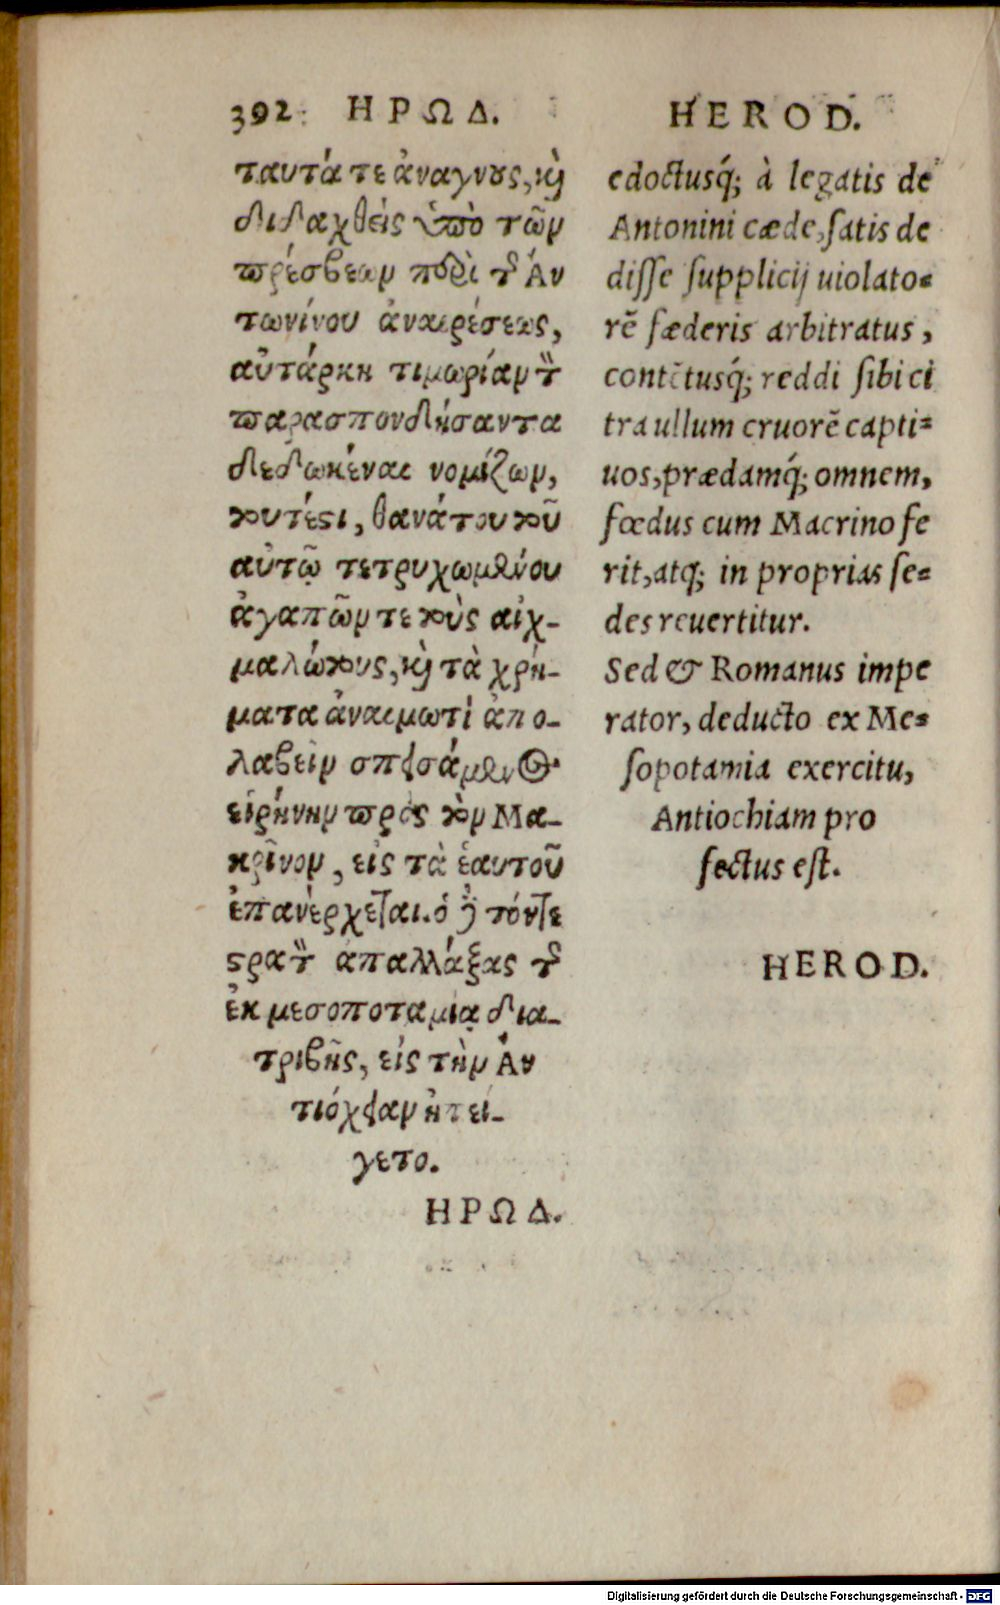 392 ΗΡΩΔ.
ταυτά τε ἀναγνοὺς, καὶ
διδαχθεὶς ὑπὸ τῶν
πρέσβεων περὶ τοῦ Ἀν
τωνίνου ἀναιρέσεως,
αὐτάρκη τιμωρίαν τὸν
παρασπονδήσαντα
δεδωκέναι νομίζων,
τουτέστι, θανάτου τοῦ
αὐτῷ τετρυχωμένου
ἀγαπῶν τε τοὺς αἰχ-
μαλώτους, καὶ τὰ χρή-
ματα ἀναιμωτὶ ἀπο-
λαβεῖν σπεισάμενος
εἰρήνην πρὸς τὸν Μα-
κρῖνον, εἰς τὰ ἑαυτοῦ
ἐπανέρχεται. ὁ δὲ τόντε
στρατὸν ἀπαλλάξας τῆς
ἐκ μεσοποταμίᾳ δια-
τριβῆς, εἰς τὴν Ἀν
τιόχειαν ἠπεί-
γετο.
ΗΡΩΔ.
HEROD.
edoctusq́; à legatis de
Antonini cæde, satis de
disse supplicij uiolato=
rē fæderis arbitratus,
contētusq́; reddi sibi ci
tra ullum cruorē capti=
uos, prædamq́; omnem,
fœdus cum Macrino fe
rit, atq; in proprias se=
des reuertitur.
Sed & Romanus impe
rator, deducto ex Me=
sopotamia exercitu,
Antiochiam pro
fectus est.
HEROD.
Digitalisierung gefördert durch die Deutsche Forschungsgemeinschaft - DFG